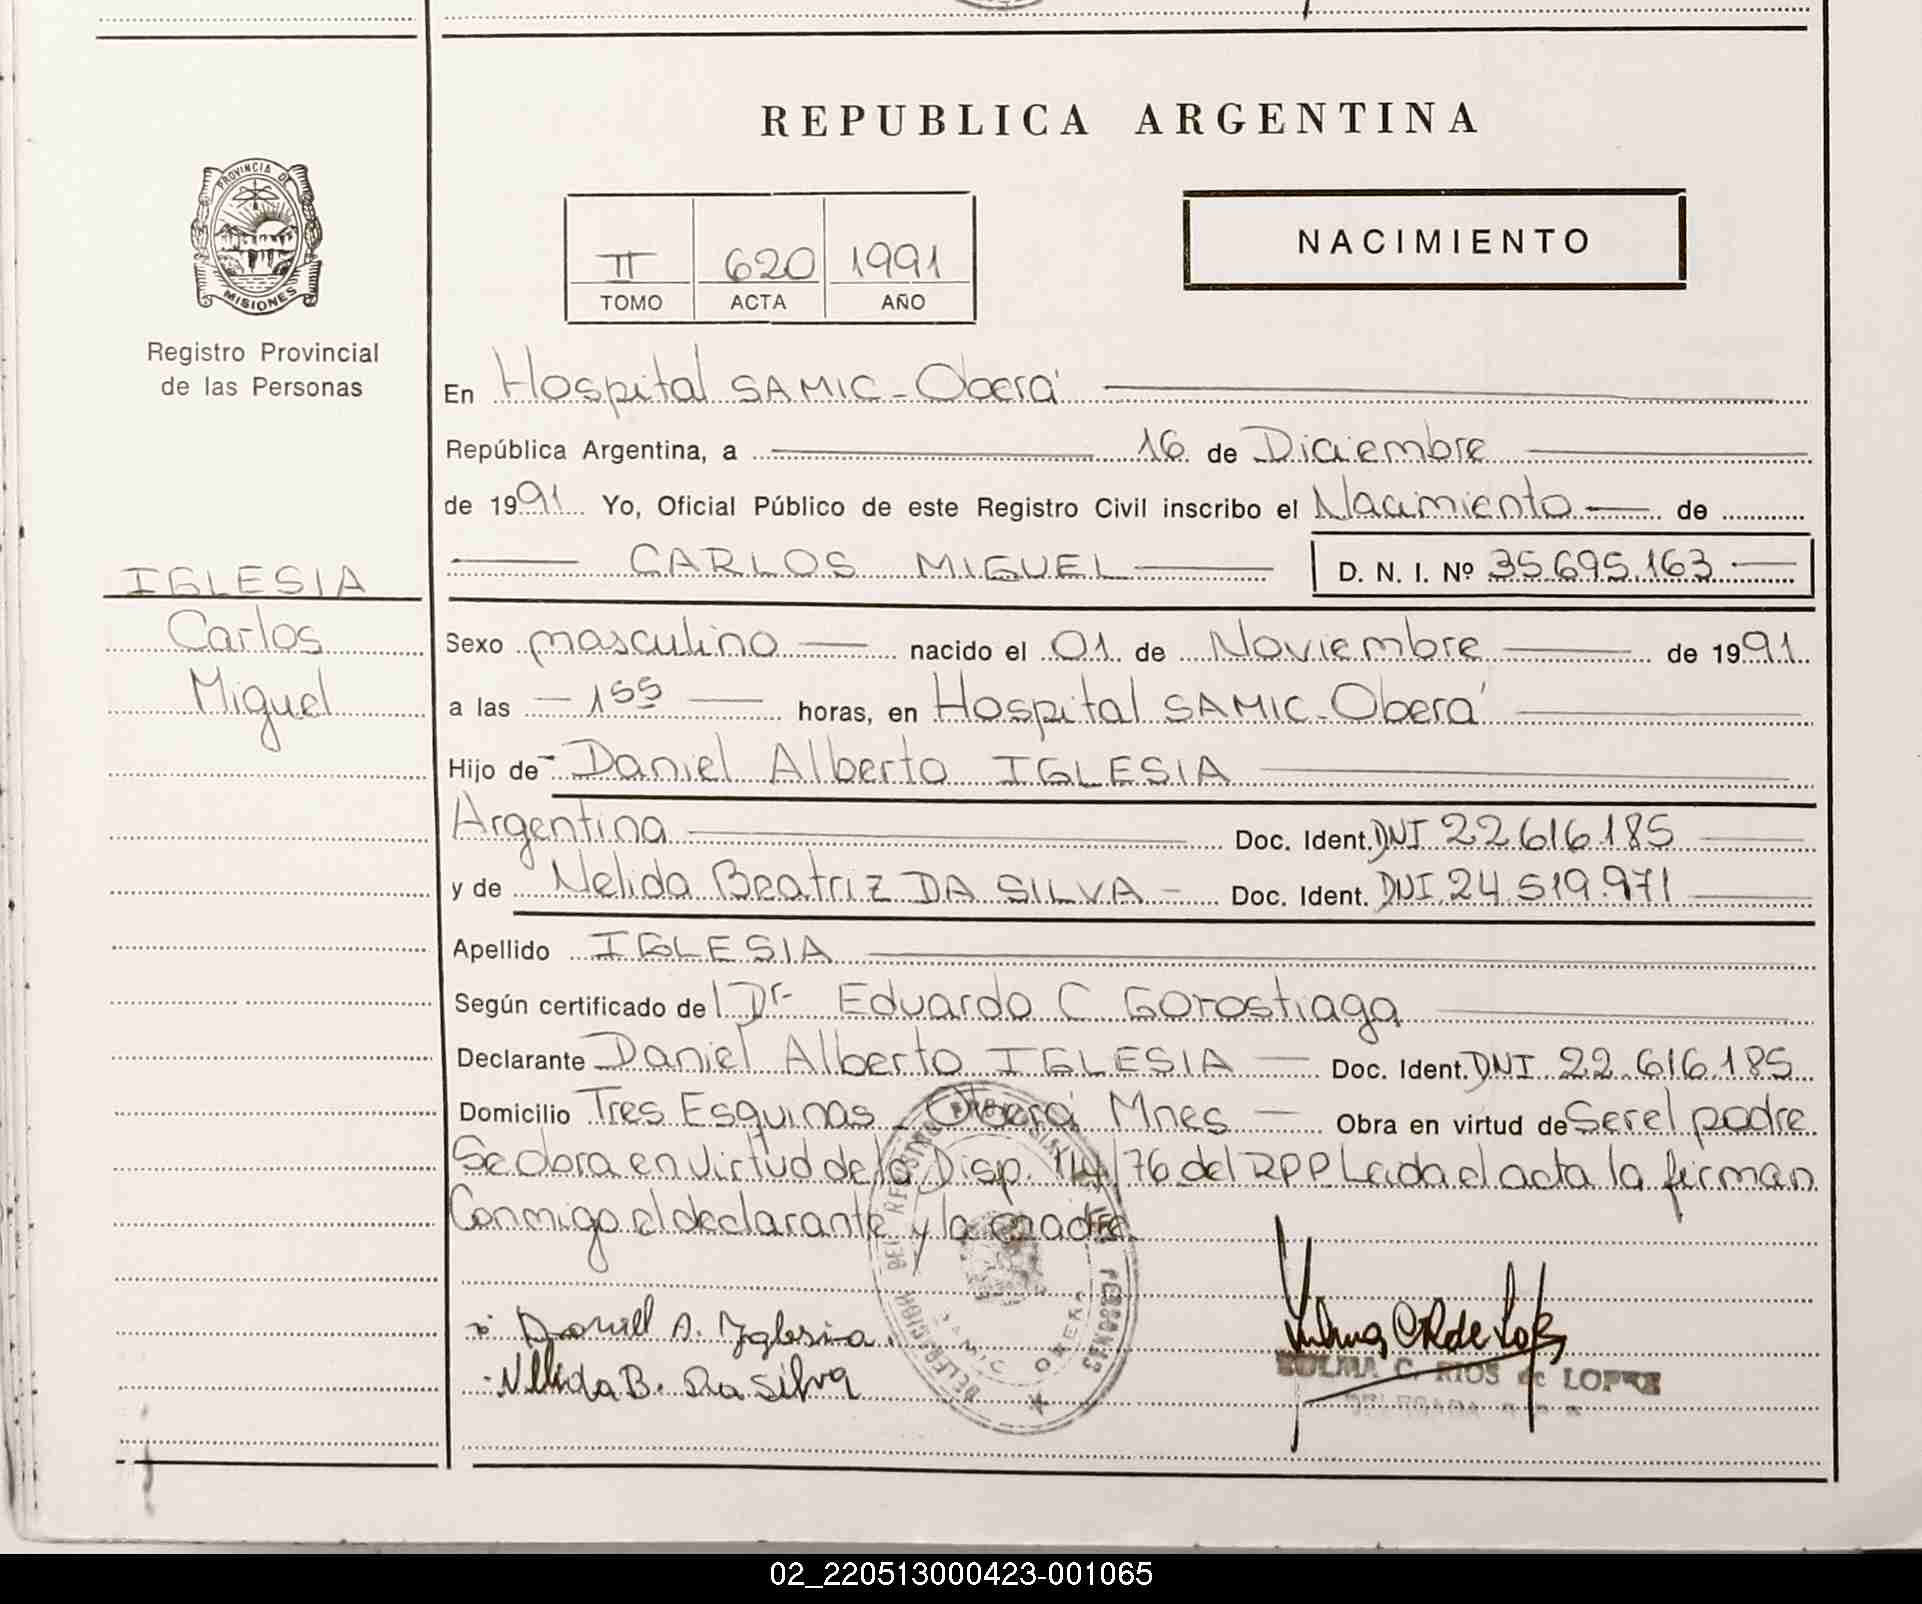 REPUBLICA ARGENTINA
PROVINCIA DE
MISIONES
Registro Provincial
de las Personas
IGLESIA
Carlos
Miguel
II 620 1991
TOMO ACTA AÑO
NACIMIENTO
En Hospital SAMIC - Oberá
República Argentina, a 16 de Diciembre
de 1991 Yo, Oficial Público de este Registro Civil inscribo el Nacimiento de
CARLOS MIGUEL D. N. I. Nº 35.695.163
Sexo masculino nacido el 01 de Noviembre de 1991
a las 1 55 horas, en Hospital SAMIC - Oberá
Hijo de Daniel Alberto IGLESIA
Argentina Doc. Ident. DNI 22.616.185
y de Nelida Beatriz DA SILVA Doc. Ident. DNI 24.519.971
Apellido IGLESIA
Según certificado de Dr. Eduardo C Gorostiaga
Declarante Daniel Alberto IGLESIA Doc. Ident. DNI 22.616.185
Domicilio Tres Esquinas Oberá Mnes Obra en virtud de Ser el padre
Se labra en virtud de la Disp. 114/76 del RPP Leida el acta la firman
Conmigo el declarante y la madre
Daniel A. Yglesia.
Nelida B. Da Silva
DELEGACION DEL REGISTRO PERSONAS
SAMIC OBERA
ZULMA C. RIOS de LOPEZ
02_220513000423-001065